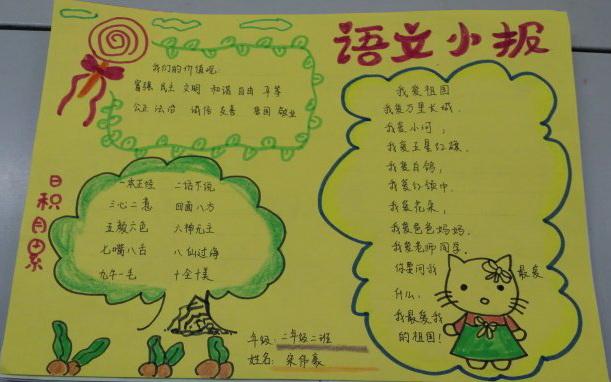 语文小报
我们的价值观:
富强 民主 文明 和谐 自由 平等
公正 法治 诚信 友善 爱国 敬业
日积月累
一本正经 二话不说
三心二意 四面八方
五颜六色 六神无主
七嘴八舌 八仙过海
九牛一毛 十全十美
我爱祖国
我爱万里长城,
我爱小河;
我爱五星红旗,
我爱白鸽;
我爱红领巾,
我爱花朵;
我爱爸爸妈妈,
我爱老师同学。
你要问我最爱
什么,
我最爱我
的祖国!
年级:二年级二班
姓名: